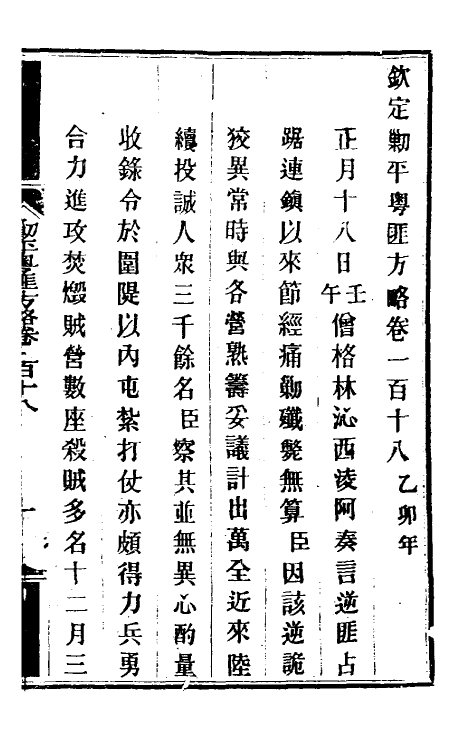 欽定勦平粵匪方略卷一百十八 乙卯年
正月十八日壬午僧格林沁西淩阿奏言逆匪占
踞連鎮以來節經痛勦殲斃無算臣因該逆詭
狡異常時與各營熟籌妥議計出萬全近來陸
續投誠人衆三千餘名臣察其並無異心酌量
收錄令於圍隄以內屯紮打仗亦頗得力兵勇
合力進攻焚燬賊營數座殺賊多名十二月三
勦平粵匪方略卷一百十八
一